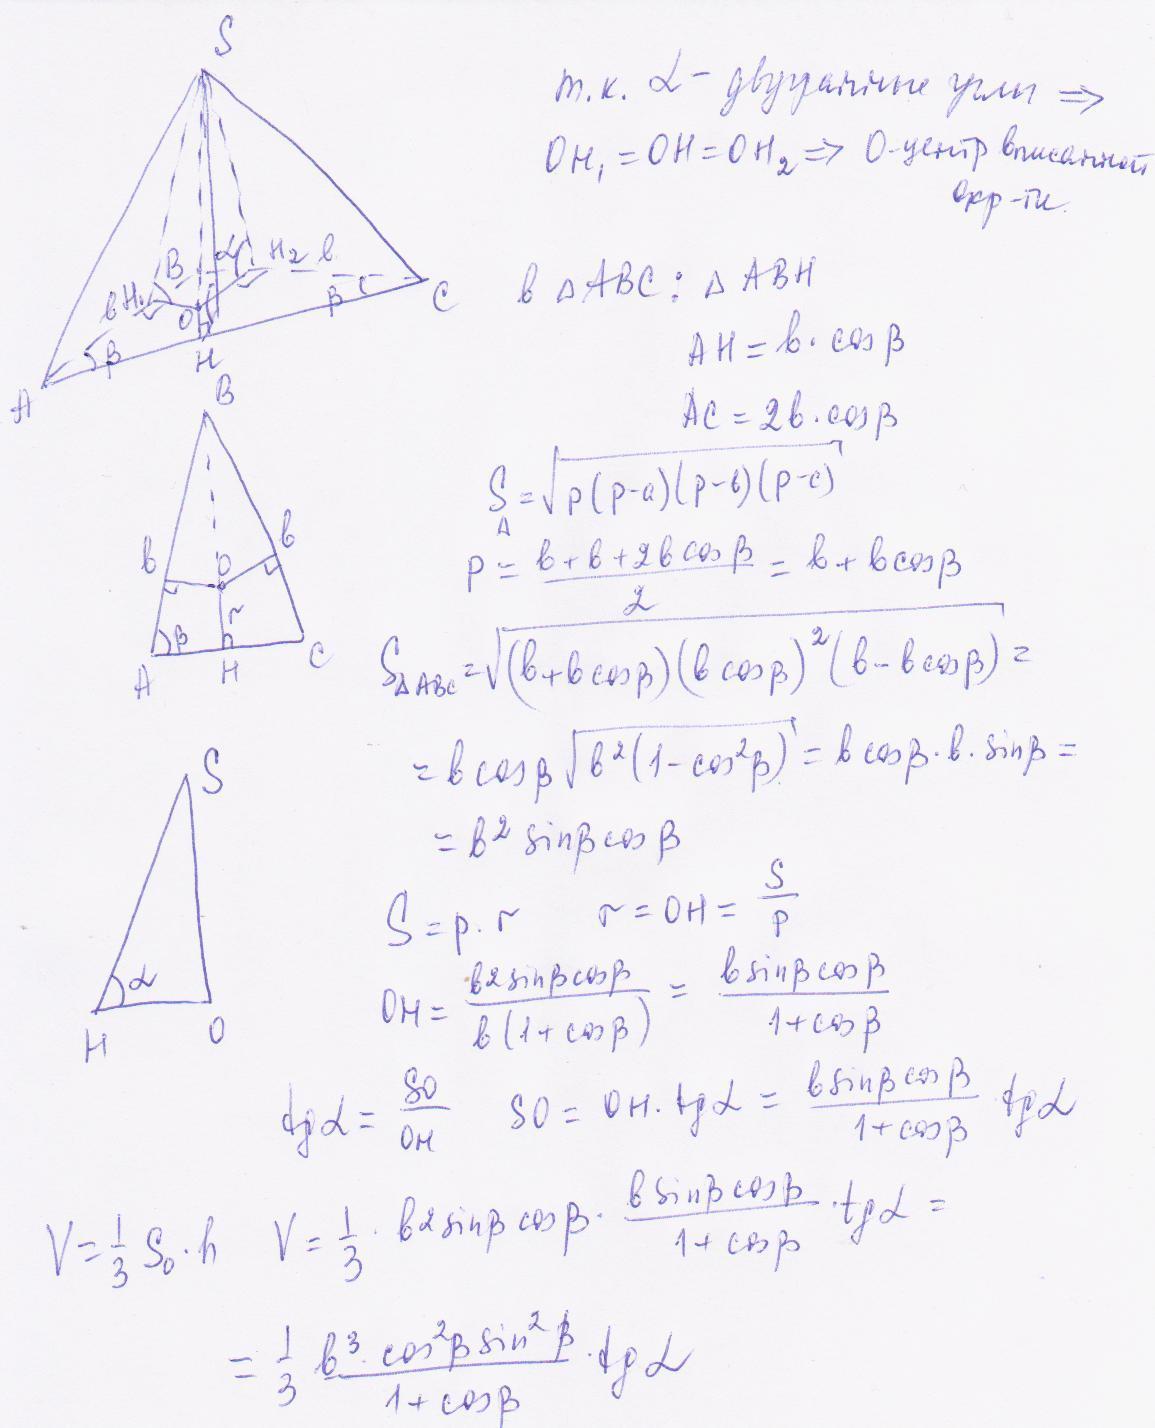 S
т.к. α - двугранные углы ⇒
OH₁ = OH = OH₂ ⇒ O-центр вписанной
окр-ти.
B α H₂ в
в H₁ O β C
A β H
в △ABC: △ABH
AH = в · cos β
AC = 2в · cos β
B
S△ = √(p(p-a)(p-в)(p-c))
в O в
p = (в + в + 2в cos β)/2 = в + в cos β
β r
A H C
S△ABC = √((в + в cos β)(в cos β)²(в - в cos β)) =
= в cos β √(в²(1 - cos²β)) = в cos β · в · sin β =
= в² sin β cos β
S
α
H O
S = p · r r = OH = S/p
OH = (в² sin β cos β)/(в(1 + cos β)) = (в sin β cos β)/(1 + cos β)
tg α = SO/OH SO = OH · tg α = (в sin β cos β)/(1 + cos β) · tg α
V = 1/3 S₀ · h V = 1/3 · в² sin β cos β · (в sin β cos β)/(1 + cos β) · tg α =
= 1/3 (в³ · cos²β sin²β)/(1 + cos β) · tg α